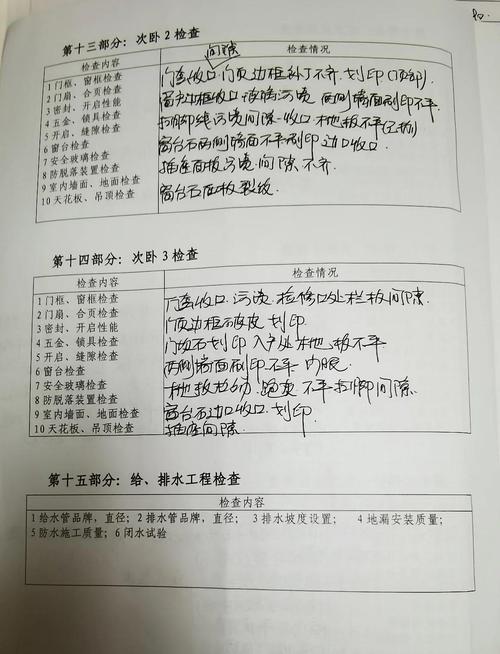 第十三部分：次卧 2 检查
间隙
检查内容 检查情况
1 门框、窗框检查
2 门扇、合页检查
3 密封、开启性能
4 五金、锁具检查
5 开启、缝隙检查
6 窗台检查
7 安全玻璃检查
8 防脱落装置检查
9 室内墙面、地面检查
10 天花板、吊顶检查
门套收口 门页边框补丁不齐. 划印(顶部)
窗户边框收口 污渍 两侧墙面刮印不平
扫脚线污渍间隙 收口 木地板不平
窗台石两侧墙面不平刮印 边口收口
插座面板污渍 间隙、不齐.
窗台石面板裂纹.
第十四部分：次卧 3 检查
检查内容 检查情况
1 门框、窗框检查
2 门扇、合页检查
3 密封、开启性能
4 五金、锁具检查
5 开启、缝隙检查
6 窗台检查
7 安全玻璃检查
8 防脱落装置检查
9 室内墙面、地面检查
10 天花板、吊顶检查
门套收口 污渍. 检修口处栏板间隙.
门页边框破皮 划印
门坎石划印 入户处木地板不平
两侧墙面刮印不平
木地板 不平 扫脚间隙
窗台石边口收口. 划印.
插座间隙.
第十五部分：给、排水工程检查
检查内容
1 给水管品牌，直径；2 排水管品牌，直径； 3 排水坡度设置； 4 地漏安装质量；
5 防水施工质量；6 闭水试验